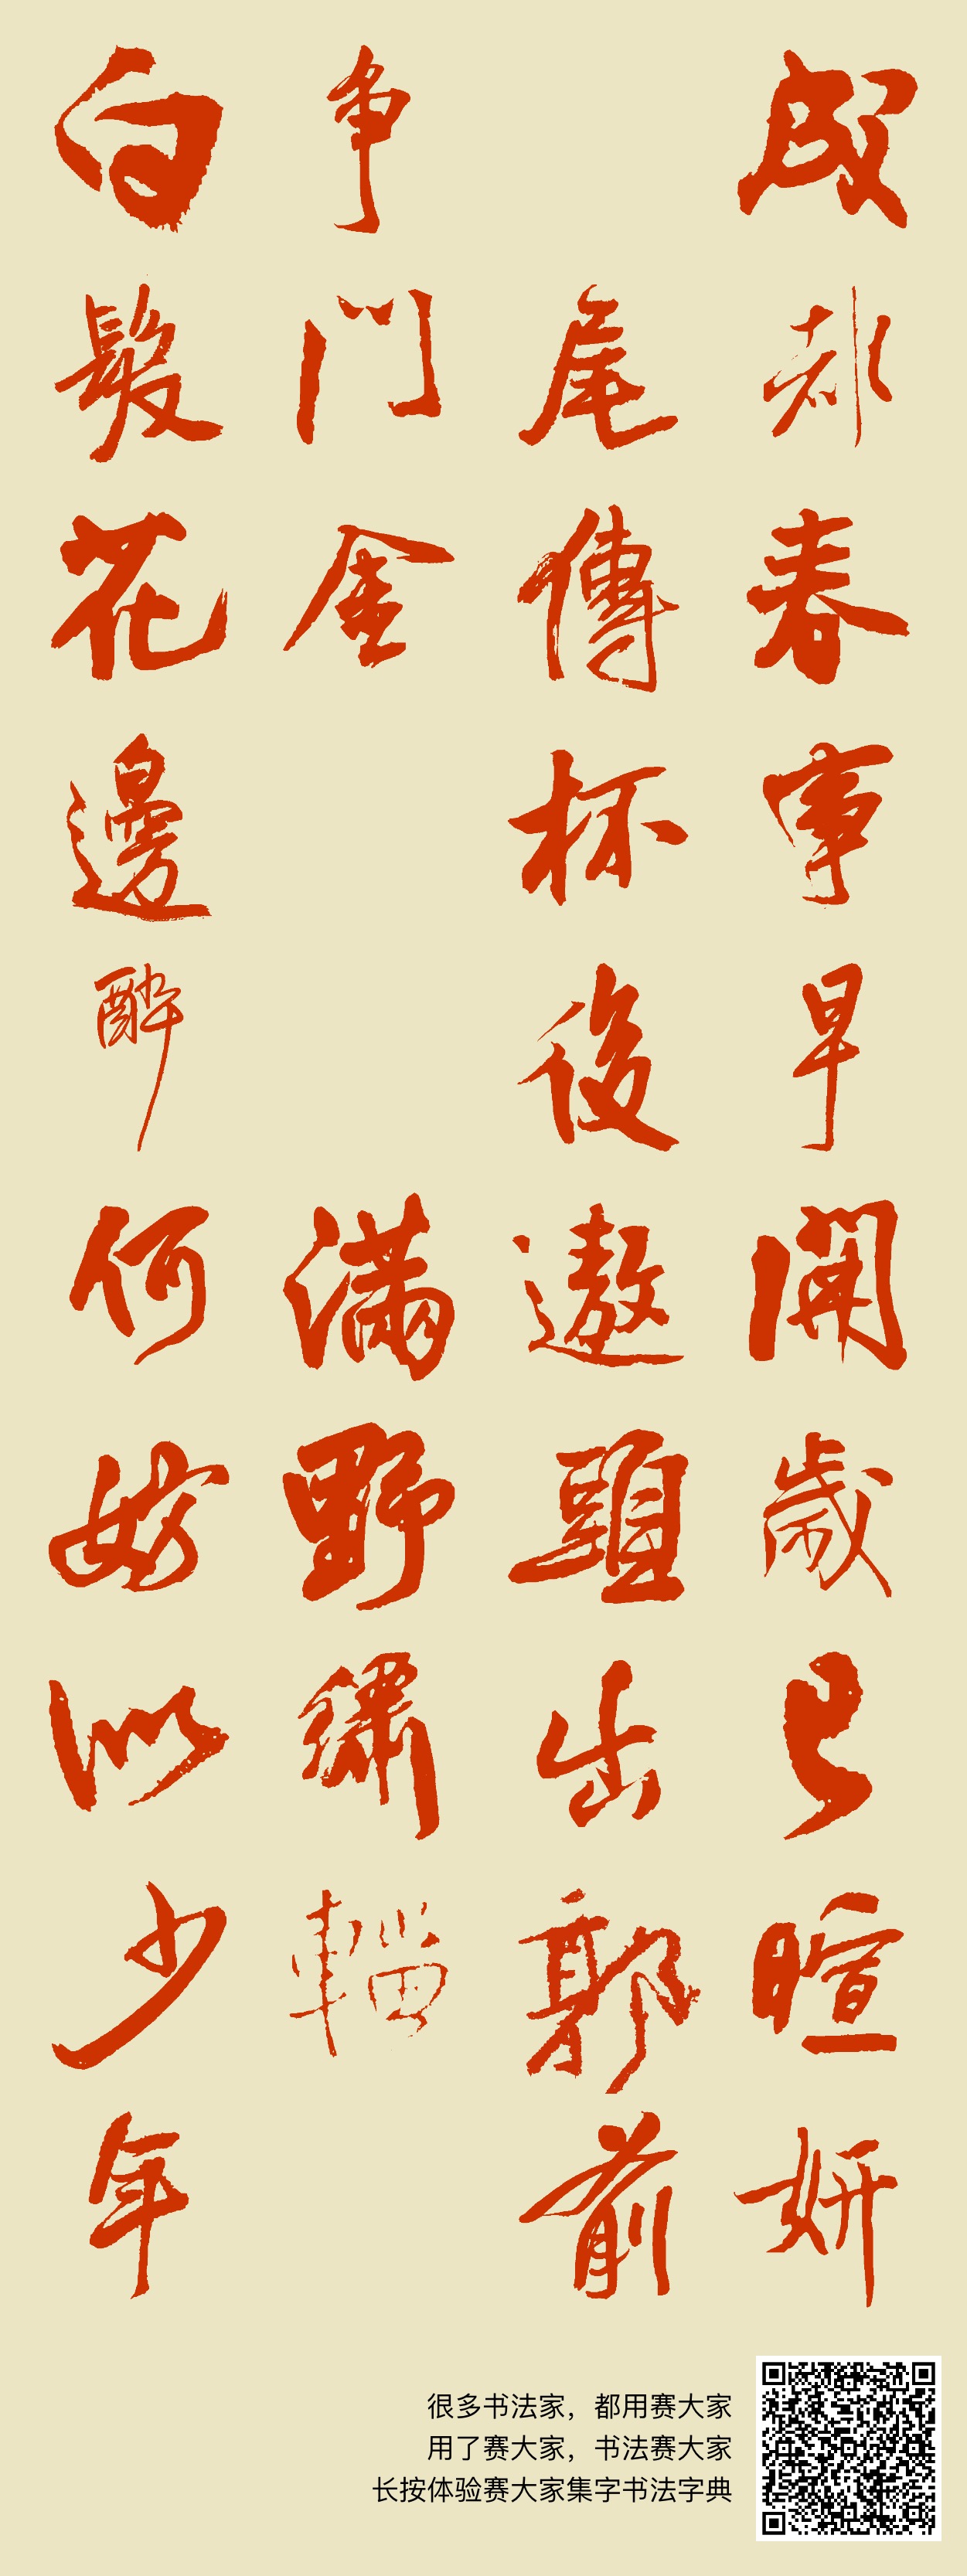 成都春事早開歲已暄妍
尾傳杯後遨頭出郭前
争門金滿野繡輜
白髮花邊醉何妨似少年
很多书法家，都用赛大家
用了赛大家，书法赛大家
长按体验赛大家集字书法字典